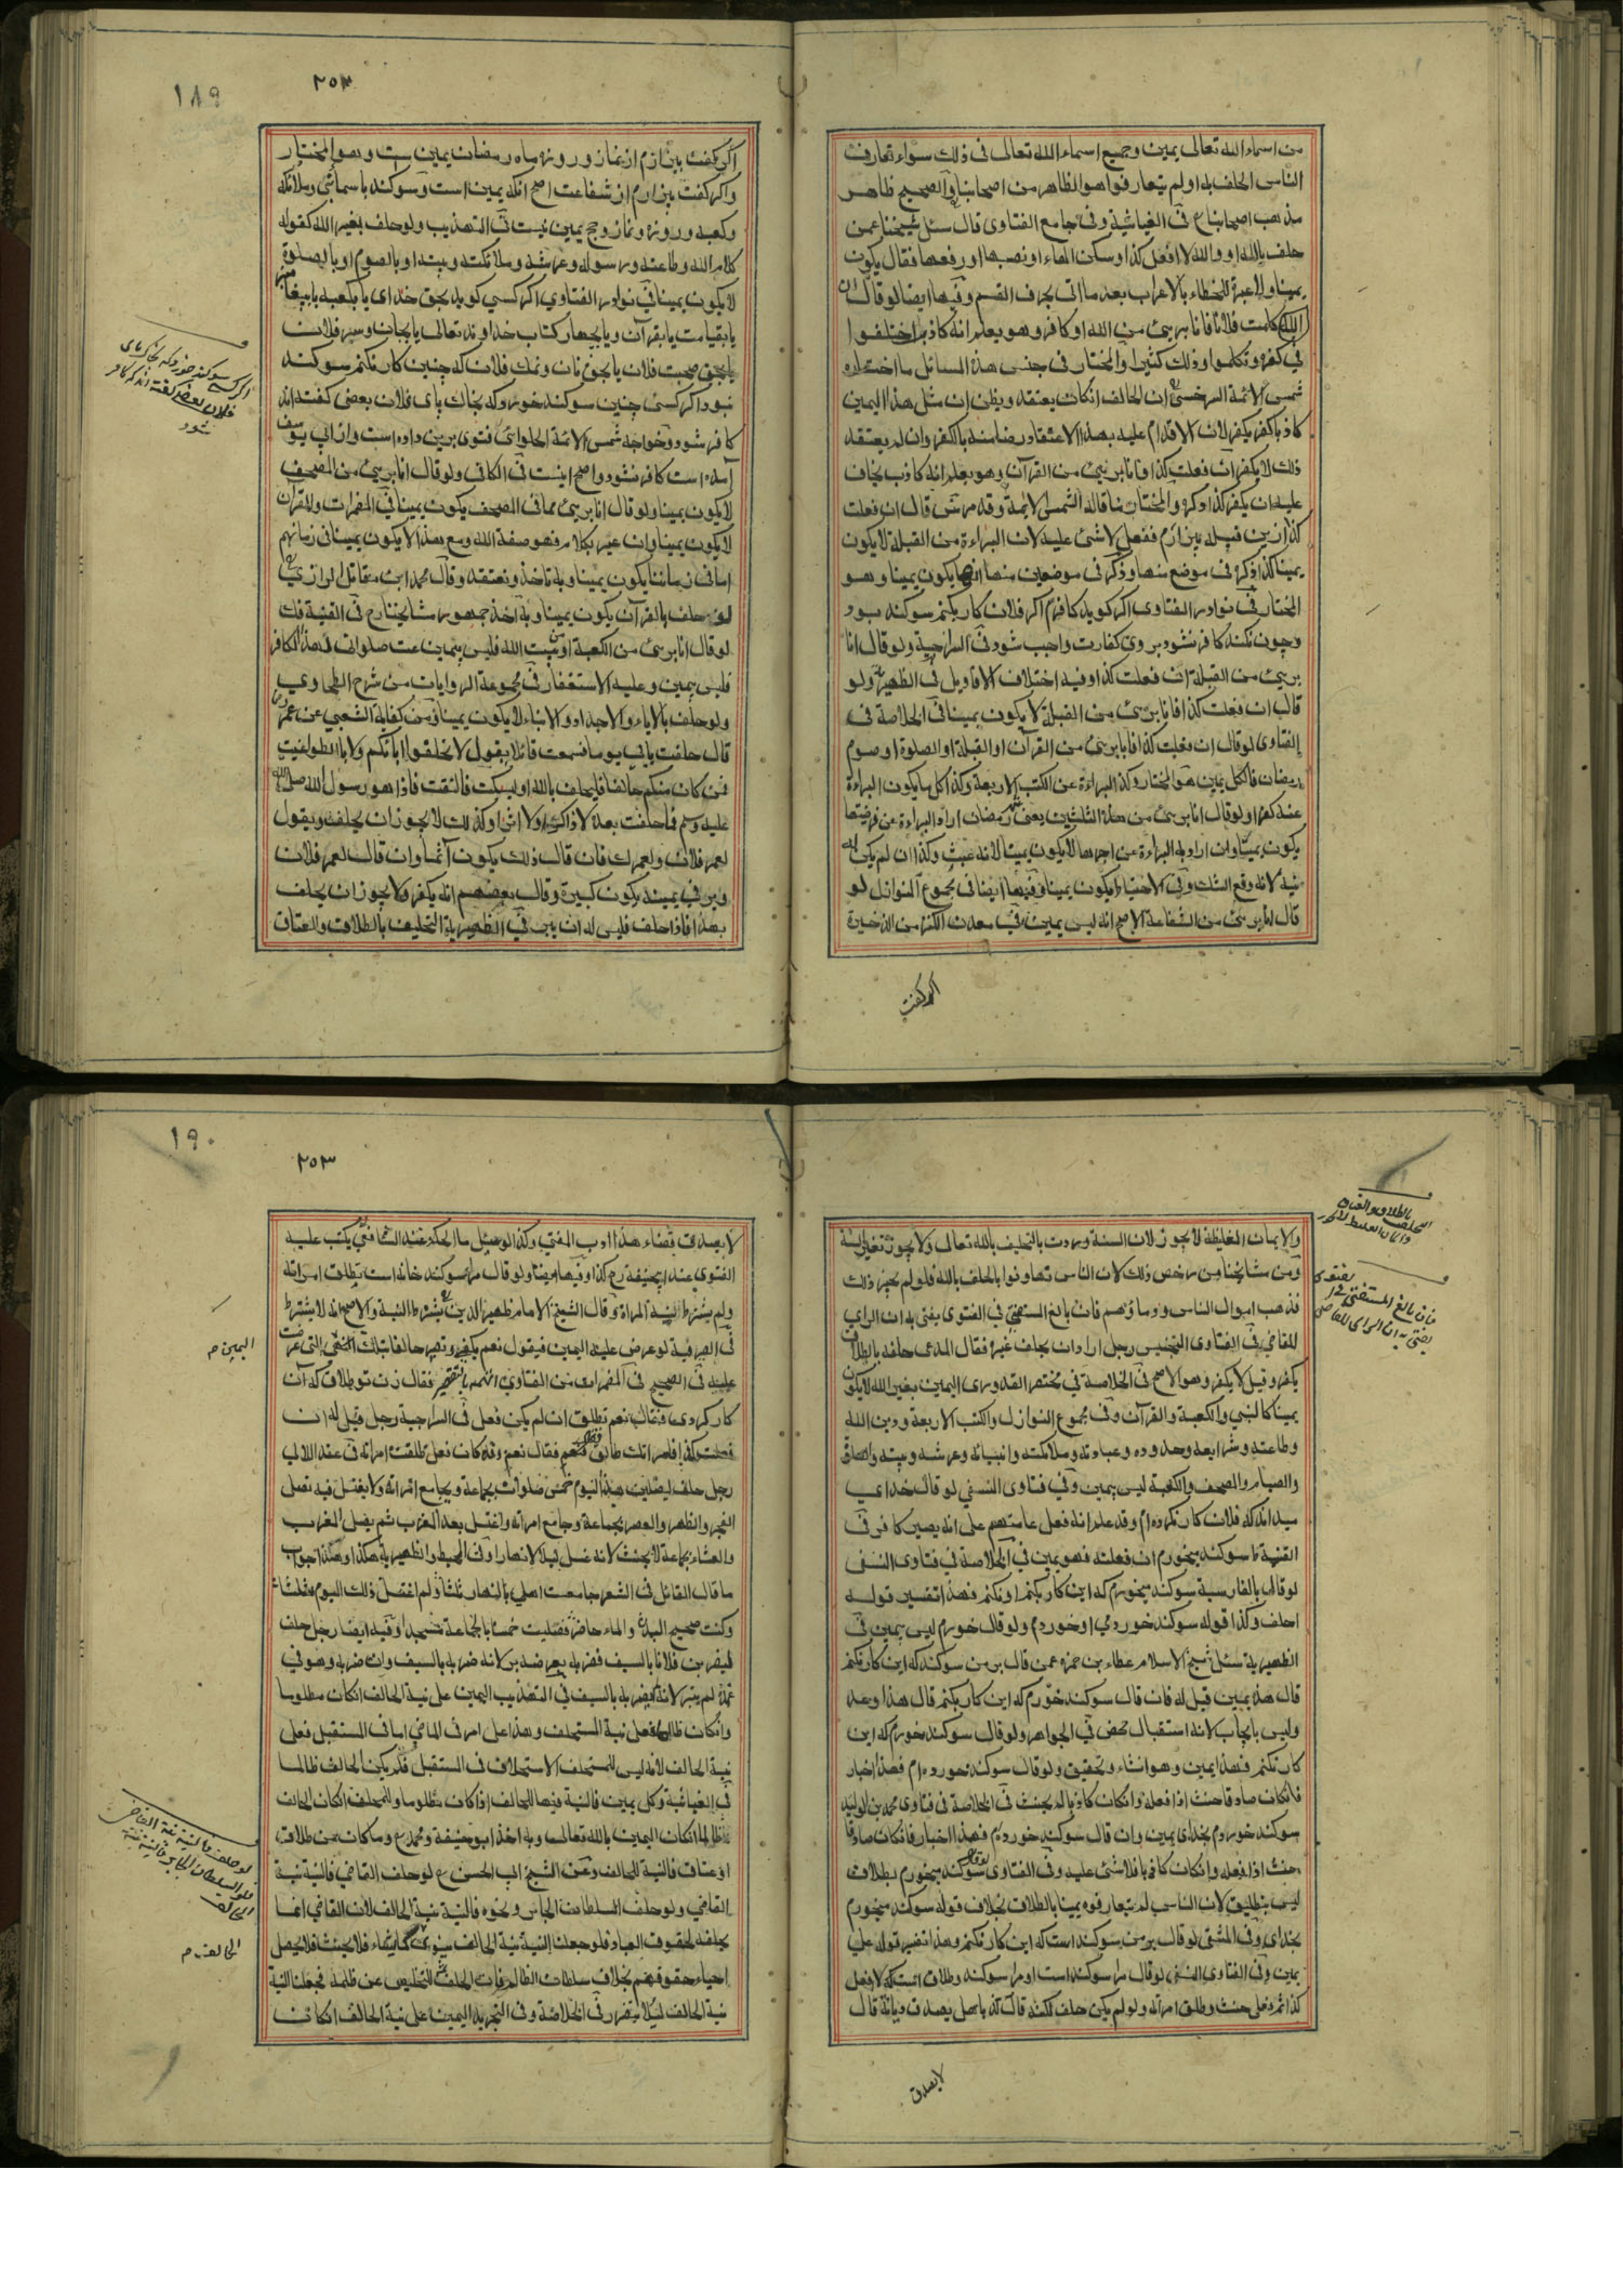 من اسماء الله تعالى يمين وجميع اسماء الله تعالى فى ذلك سواء تعارف
الناس الحلف به او لم يتعارفوا هو الظاهر من اصحابنا والصحيح ظاهر
مذهب اصحابنا فى الغياثية وفى جامع الفتاوى قال سئل شيخنا عمن
حلف بالله او والله لا افعل كذا وسكن الهاء او نصبها او رفعها فقال يكون
يمينا ولا عبرة للخطاء بالاعراب بعد ما اتى بحرف القسم وفيها ايضا لو قال ان
كلمت فلانا فانا برىء من الله او كافر وهو يعلم انه كاذب اختلفوا
فى كفره وتكلموا وذلك كثيرا والمختار فى جنس هذه المسائل ما اختاره
شمس الائمة السرخسى ان الحالف انكان يعتقد ويظن ان مثل هذا اليمين
كاذبا كفر يكفر لان الاقدام عليه بهذا الاعتقاد رضا منه بالكفر وان لم يعتقد
ذلك لا يكفر ان فعلت كذا فانا برىء من القرآن وهو يعلم انه كاذب يخاف
عليه ان يكفر كذا ذكره والمختار ما قاله الشمس الائمة وقد مر ش قال ان فعلت
كذا ازين قبله بيزارم ففعل لا شىء عليه لان البراءة من القبلة لا يكون
يمينا كذا ذكره فى موضع منها وذكر فى موضعين منها انها يكون يمينا وهو
المختار فى نوادر الفتاوى اگر گويد كافرم اگر فلان كار بكنم سوكند بود
وچون بكند كافر نشود بروى كفارت واجب شود فى السراجية ولو قال انا
برىء من القبلة ان فعلت كذا وفيه اختلاف الاقاويل فى الظهيرية ولو
قال ان فعلت كذا فانا برىء من القبلة لا يكون يمينا فى الخلاصة فى
الفتاوى لو قال ان فعلت كذا فانا برىء من القرآن او القبلة او الصلوة او صوم
رمضان فالكل يمين هو المختار وكذا البراءة عن الكتب الاربعة وكذا كل ما يكون البراءة
عنه كفرا ولو قال انا برىء من هذه الثلثين يعنى شهر رمضان اراد البراءة عن فرضيتها
يكون يمينا وان اراد به البراءة عن اجرها لا يكون يمينا لانه غيب وكذا ان لم يكن له
نية لانه وقع الشك وفى الاحتياط يكون يمينا وفيها ايضا فى مجموع النوازل لو
قال انا برىء من الشفاعة الاصح انه ليس بيمين فى معدن الكنز من الذخيرة
اگر گفت
٢٥٢
١٨٩
اگر گفت بيزارم از نماز وروزه ماه رمضان يمين ست وهو المختار
واگر گفت بيزارم از شفاعت اصح انكه يمين است وسوكند باسمانى وملائكه
وكعبه وروزه ونماز وحج يمين نيست فى التهذيب ولو حلف بغير الله كقوله
كلام الله وطاعته ورسوله وعرشه وملائكته وبيته او بالصوم او بالصلوة
لا يكون يمينا فى نوادر الفتاوى اگر كسى گويد بحق خداى يا بكعبه يا بپيغامبر
يا بقيامت يا بقرآن ويا بچهار كتاب خداوند تعالى يا بجان وسر فلان
يا بحق صحبت فلان يا بحق نان ونمك فلان كه چنين كار نكنم سوكند
نبود اگر كسى چنين سوكند خورد كه بخاك پاى فلان بعضى گفته اند
كافر شود وخواجه شمس الائمة الحلوائى فتوى برين داده است واز ابى يوسف
آمده است كافر نشود واصح اينست فى الكافى ولو قال انا برىء من المصحف
لا يكون يمينا ولو قال انا برىء مما فى المصحف يكون يمينا فى المضمرات والقرآن
لا يكون يمينا وان عبر بكلام فهو صفة الله ومع هذا لا يكون يمينا فى زمانهم
اما فى زماننا يكون يمينا وبه ناخذ ونعتقد وقال محمد ابن مقاتل الرازى
لو حلف بالقرآن يكون يمينا وبه اخذ جمهور مشايخنا رح فى القنية فك
لو قال انا برىء من الكعبة او بيت الله فليس بيمين عت صلواتى لهذا الكافر
فليس بيمين وعليه الاستغفار فى مجموعة الروايات من شرح الطحاوى
ولو حلف بالاباء والاجداد والابناء لا يكون يمينا ومن كفاية الشعبى عن عمر رض
قال حلفت بابى يوما فسمعت قائلا يقول لا تحلفوا بابائكم ولا بالطواغيت
فمن كان منكم حالفا فليحلف بالله او ليسكت فالتفت فاذا هو رسول الله صلى الله
عليه وسلم فما حلفت بعد لا ذاكرا ولا اثرا وكذلك لا يجوز ان يحلف ويقول
لعمر فلان ولعمرك فان قال ذلك يكون آثما وان قال لعمر فلان
وبر فى يمينه يكون كبيرة وقال بعضهم انه يكفر ولا يجوز ان يحلف
بهذا فاذا حلف فليس له ان يبر فى الظهيرية التحليف بالطلاق والعتاق
اگر كسى سوكند خورد كه بخاك پاى
فلان بعضى گفته اند كه كافر
شود
والايمان المغلظة لا يجوز لان السنة وردت بالتحليف بالله تعالى ولا يجوز تغيير السنة
ومن مشايخنا من رخص ذلك لان الناس تهاونوا بالحلف بالله فلو لم يجز ذلك
فذهب اموال الناس ودماؤهم فان بالغ المستفتى فى الفتوى يفتى به ان الراى
للقاضى فى الفتاوى التجنيس رجل اراد ان يحلف غيره فقال المدعى حلفه بالطلاق
يكفر وقيل لا يكفر وهو الاصح فى الخلاصة فى مختصر القدورى اليمين بغير الله لا يكون
يمينا كالنبى والكعبة والقرآن وفى مجموع النوازل والكتب الاربعة ودين الله
وطاعته وشرايعه وحدوده وعباداته وملائكته وانبيائه وعرشه وبيته والصلوة
والصيام والمصحف والكعبة ليس بيمين وفى فتاوى النسفى لو قال خداى
ميداند كه فلان كار نكرده ام وقد علم انه فعل عامتهم على انه يصير كافر فى
القنية تا سوكند ميخورم ان فعلته فهو يمين فى الخلاصة فى فتاوى النسفى
لو قال بالفارسية سوكند ميخورم كه اين كار بكنم او نكنم فهذا تفسير قوله
احلف وكذا قوله سوكند خوردمى او خوردم ولو قال خورم ليس بيمين فى
الظهيرية سئل شيخ الاسلام عطاء بن حمزه عمن قال بر من سوكند كه اين كار نكنم
قال هذا يمين قيل له فان قال سوكند خورم كه اين كار بكنم قال هذا وعد
وليس بايجاب لانه استقبال محض فى الجواهر ولو قال سوكند خورم كه اين
كار نكنم فهذا يمين وهو انشاء وتحقيق ولو قال سوكند خورده ام فهذا اخبار
فانكان صادقا حنث اذا فعله وانكان كاذبا لم يحنث فى الخلاصة فى فتاوى محمد بن الوليد
سوكند خوردم بخداى يمين وان قال سوكند خورده ام فهذا اخبار فانكان صادقا
حنث اذا فعله وانكان كاذبا فلا شىء عليه وفى الفتاوى لو قال سوكند ميخورم بطلاق
ليس بتطليق لان الناس لم يتعارفوه يمينا بالطلاق بخلاف قوله سوكند ميخورم
بخداى وفى المنتقى لو قال بر من سوكند است كه اين كار نكنم وهذا تفسير قوله على
يمين وفى الفتاوى النسفى لو قال مرا سوكند است او مرا سوكند وطلاق است كه لا افعل
كذا ثم فعل حنث وطلق امرأته ولو لم يكن حلف لكنه قال كذبا هل يصدق ديانة قال
لا يصدق
التحليف بالطلاق والعتاق
والايمان الغليظ لا يجوز
فان بالغ المستفتى فى الفتوى
يفتى به ان الراى للقاضى
٢٥٣
١٩٠
لا يصدق قضاء هذا ادب المفتى وكذا لو سئل ما الحكم عند الشافعى يكتب عليه
الفتوى عند ابيحنيفة رح كذا وفيها ايضا ولو قال مرا سوكند خانه است يطلق امرأته
ولم يشترط نية المرأة وقال الشيخ الامام ظهير الدين يشترط النية والاصح انه لا يشترط
فى الصيرفية لو عرض عليه اليمين فيقول نعم يكفى ويصير حالفا بتلك التى عرضت
عليه فى الصحيح فى المضمرات من الفتاوى فقال زن تو طلاق كه آن
كار كردى فقال نعم تطلق ان لم يكن فعل فى السراجية رجل قيل له ان
فعلت كذا فامرأتك طالق فقال نعم وقد كان فعل طلقت امرأته فى عقد اللالى
رجل حلف ليصلين هذا اليوم خمس صلوات بجماعة ويجامع امرأته ولا يغتسل فيه فصلى
الفجر والظهر والعصر بجماعة وجامع امرأته واغتسل بعد المغرب ثم يصل المغرب
والعشاء بجماعة لا يحنث لانه غسل ليلا لا نهارا وفى المحيط والظهيرية هكذا وهذا جواب
ما قال القائل فى الشعر جامعت اهلى بالنهار ثلثا ولم اغتسل ذلك اليوم مثلثا
وكنت صحيح البدن والماء حاضر فصليت خمسا بالجماعة مسجدا وفيه ايضا رجل حلف
ليضربن فلانا بالسيف فضربه بعرضه بر لانه ضربه بالسيف وان ضربه وهو فى
غمده لم يبر لانه لم يضربه بالسيف فى التهذيب اليمين على نية الحالف انكان مظلوما
وانكان ظالما فعلى نية المستحلف وهذا على امر فى الماضى اما فى المستقبل فعلى
نية الحالف لانه ليس للمستحلف الاستحلاف فى المستقبل فلم يكن الحالف ظالما
فى الغياثية وكل يمين فالنية فيها للحالف اذا كان مظلوما وللمحلف انكان الحالف
ظالما انكان اليمين بالله تعالى وبه اخذ ابو حنيفة ومحمد رح وما كان من طلاق
او عتاق فالنية للحالف وعن الشيخ ابى الحسن رح لو حلف القاضى فالنية نية
القاضى ولو حلف السلطان الجابر ونحوه فالنية نية الحالف لان القاضى انما
يحلفه لحقوق العباد فلو جعلت النية نية الحالف ينوى كما يشاء فلا يحنث فلا يحصل
احياء حقوقهم بخلاف سلطان الظالم فان الحلف للتخليص عن ظلمه فجعلنا النية
نية الحالف لئلا يتضرر فى الخلاصة وفى التجريد اليمين على نية الحالف انكان
اليمين م
لو حلف فالنية نية القاضى
ولو السلطان الجابر فالنية نية
الحالف
الحالف م